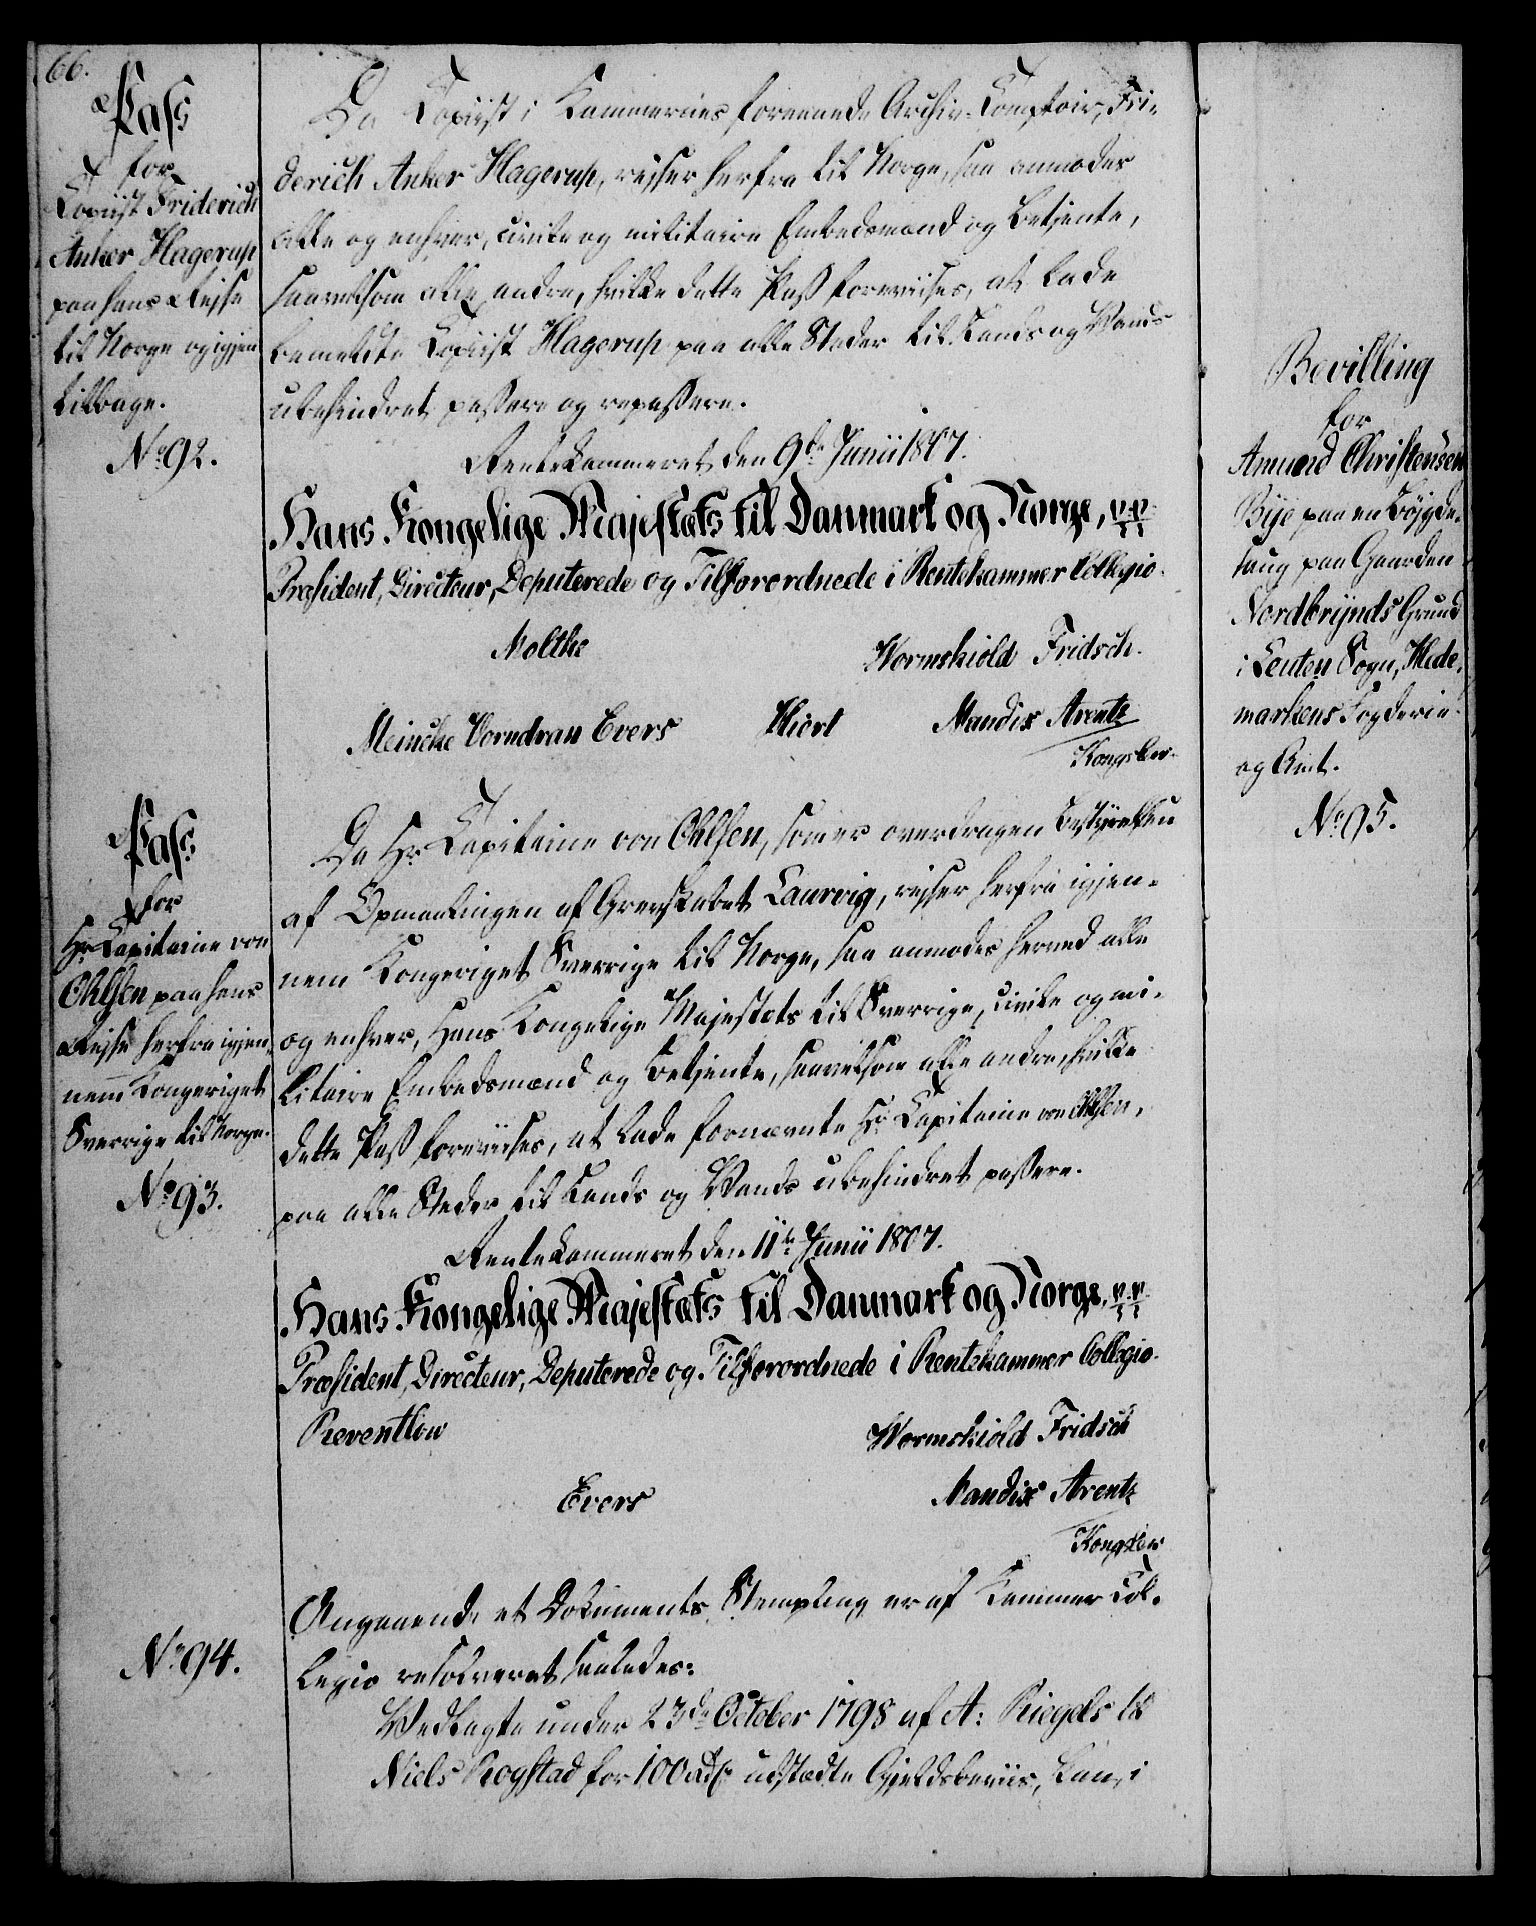 66.
Pass
for
Copiist Friderich
Anker Hagerup
paa hans Rejse
til Norge og igjen
tilbage.
No 92.
Da Copiist i Kammerets forenede Archiv-Comptoir, Fri-
derich Anker Hagerup, rejser herfra til Norge, saa anmodes
alle og enhver, civile og militaire Embedsmænd og Betjente,
saavelsom alle andre, hvilke dette Pass forevises, at lade
bemeldte Copiist Hagerup paa alle Steder til Lands og Vands
ubehindret passere og repassere.
Rentekammeret den 9de Junii 1807.
Hans Kongelige Majestæts til Danmark og Norge, p. p.
Præsident, Directeur, Deputerede og Tilforordnede i Rentekammer Collegio.
Moltke Wormskiold Fridsch.
Meincke Vorndran Evers Hiort Mandix Arentz
Kongslew.
Pass
for
Hr Capitaine von
Ohlsen paa hans
Rejse herfra igjen-
nem Kongeriget
Sverrige til Norge.
No 93.
Da Hr Capitaine von Ohlsen, som er overdragen Bestyrelsen
af Opmaalingen af Grevskabet Laurvig, rejser herfra igjen-
nem Kongeriget Sverrige til Norge, saa anmodes herved alle
og enhver, Hans Kongelige Majestæts til Sverrige, civile og mi-
litaire Embedsmænd og Betjente, saavelsom alle andre, hvilke
dette Pass forevises, at lade fornævnte Hr Capitaine von Ohlsen,
paa alle Steder til Lands og Vands ubehindret passere.
Rentekammeret den 11te Junii 1807.
Hans Kongelige Majestæts til Danmark og Norge, p. p.
Præsident, Directeur, Deputerede og Tilforordnede i Rentekammer Collegio.
Reventlow Wormskiold Fridsch
Evers Mandix Arentz
Kongslew
No 94.
Angaaende et Dokuments Stempling er af Kammer Col-
legio resolveret saaledes:
Vedlagte under 23de October 1798 af A: Riegels til
Niels Rogstad for 100 Rdlr udstædte Gjeldsbeviis, kan, i
Bevilling
for
Amund Christensen
Bije paa en Bøjgde-
saug paa Gaarden
Nordbrynds Grund
i Leuten Sogn, Hede-
markens Fogderie
og Amt.
No 95.